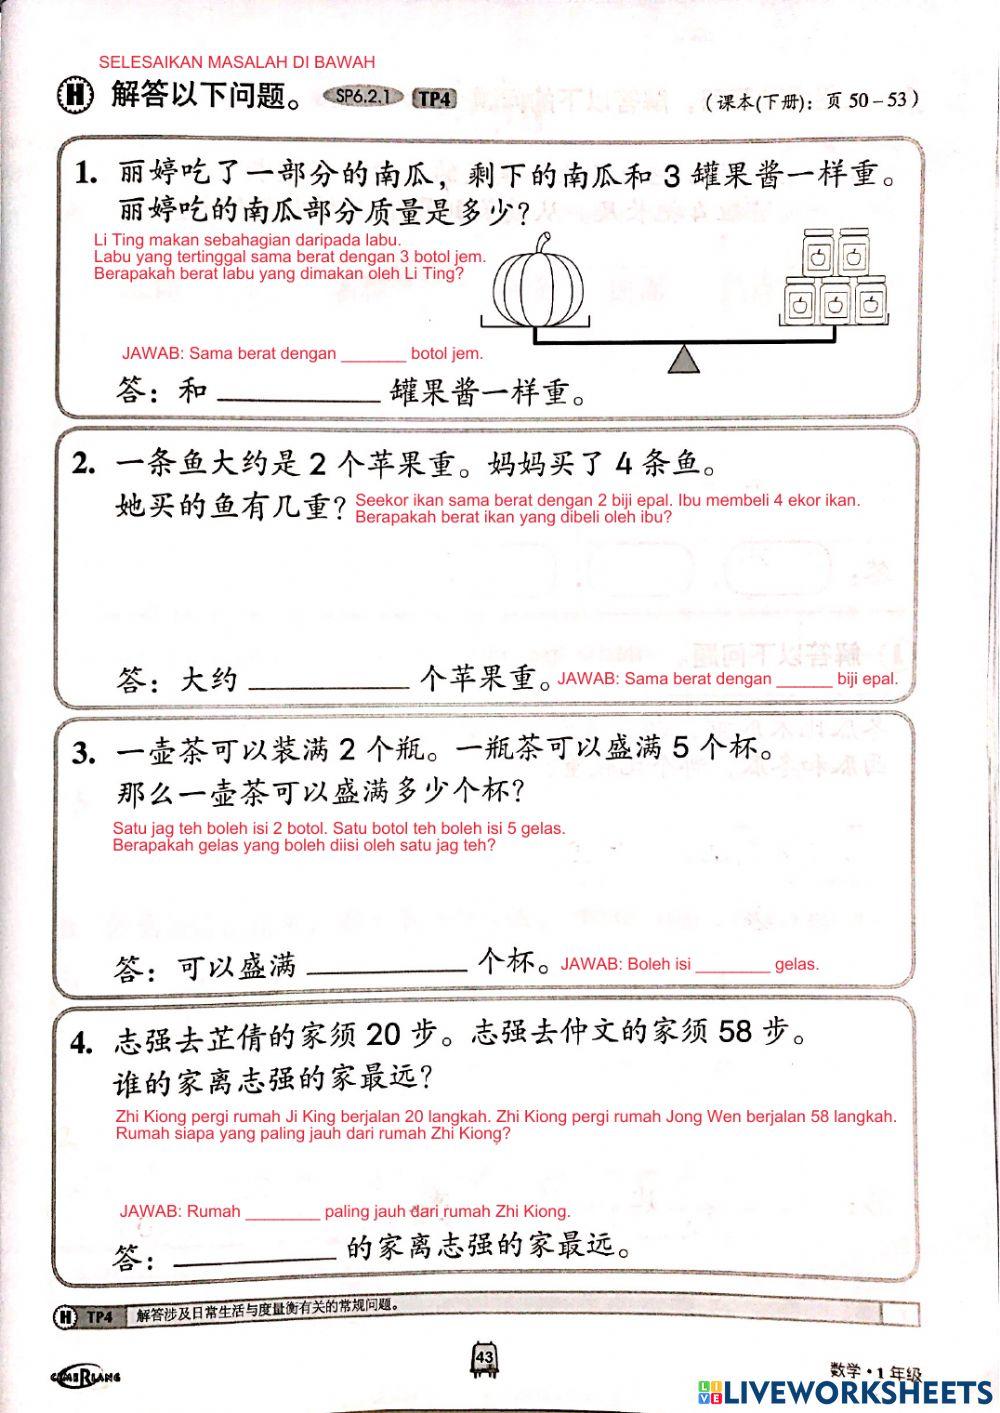 SELESAIKAN MASALAH DI BAWAH
H 解答以下问题。 SP6.2.1 TP4 (课本(下册)：页 50 – 53)
1. 丽婷吃了一部分的南瓜，剩下的南瓜和 3 罐果酱一样重。
丽婷吃的南瓜部分质量是多少？
Li Ting makan sebahagian daripada labu.
Labu yang tertinggal sama berat dengan 3 botol jem.
Berapakah berat labu yang dimakan oleh Li Ting?
JAWAB: Sama berat dengan _______ botol jem.
答：和 __________ 罐果酱一样重。
2. 一条鱼大约是 2 个苹果重。妈妈买了 4 条鱼。
她买的鱼有几重？
Seekor ikan sama berat dengan 2 biji epal. Ibu membeli 4 ekor ikan.
Berapakah berat ikan yang dibeli oleh ibu?
答：大约 __________ 个苹果重。
JAWAB: Sama berat dengan ______ biji epal.
3. 一壶茶可以装满 2 个瓶。一瓶茶可以盛满 5 个杯。
那么一壶茶可以盛满多少个杯？
Satu jag teh boleh isi 2 botol. Satu botol teh boleh isi 5 gelas.
Berapakah gelas yang boleh diisi oleh satu jag teh?
答：可以盛满 __________ 个杯。
JAWAB: Boleh isi ________ gelas.
4. 志强去芷倩的家须 20 步。志强去仲文的家须 58 步。
谁的家离志强的家最远？
Zhi Kiong pergi rumah Ji King berjalan 20 langkah. Zhi Kiong pergi rumah Jong Wen berjalan 58 langkah.
Rumah siapa yang paling jauh dari rumah Zhi Kiong?
JAWAB: Rumah ________ paling jauh dari rumah Zhi Kiong.
答：__________ 的家离志强的家最远。
H TP4 解答涉及日常生活与度量衡有关的常规问题。
CEMERLANG
43
数学・1 年级
LIVEWORKSHEETS